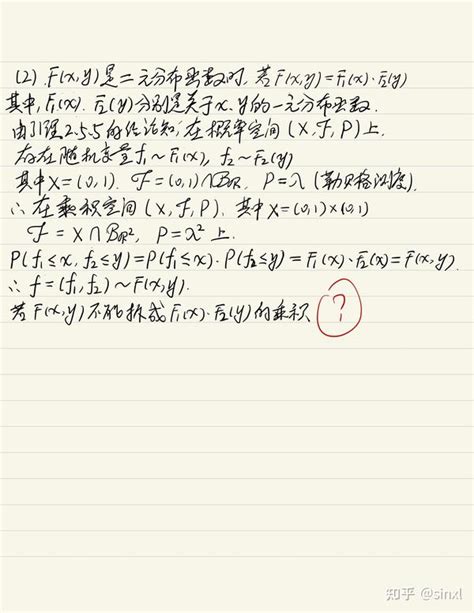 (2). F(x,y)是二元分布函数时, 若F(x,y)=F₁(x)·F₂(y)
其中,F₁(x). F₂(y)分别是关于x、y的一元分布函数.
由引理2.5.5的结论知, 在概率空间(X,F,P)上,
存在随机变量f₁~F₁(x), f₂~F₂(y)
其中X=(0,1). F=(0,1)∩B_R, P=λ(勒贝格测度).
∴在乘积空间(X,F,P). 其中X=(0,1)×(0,1)
F=X∩B_R², P=λ²上.
P(f₁≤x, f₂≤y)=P(f₁≤x)·P(f₂≤y)=F₁(x)·F₂(x)=F(x,y).
∴f=(f₁,f₂)~F(x,y).
若F(x,y)不能拆成F₁(x)·F₂(y)的乘积 ?
知乎 @sinxl